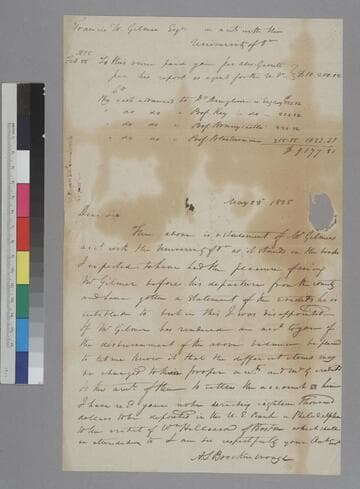 Francis W. Gilmer Esqr in acct with the
University of Va
To this sum paid you per
per his report as agent for the U. Va
Cr
By cash advanced to Dr Dunglison in England
" do do " Prof. Key " do
" do do " Prof. Bonnycastle
" do do " Prof.
May 25th 1825
Dear sir
The above is a statement of Mr Gilmer's
acct with the University of Va as it stands on the books
I expected to have had the pleasure of seeing
Mr Gilmer before his departure from the county
and have gotten a statement of the credits he is
entitled to but in this I was disappointed
if Mr Gilmer has rendered an acct to you of
the disbursement of the above balance be good
to let me know it that the different items may
be changed to their proper accts and Mr G credited
on the acct of them to close the account
I have recd yours note desiring eighteen thousand
dollars to be deposited in the U.S. Bank in Philadelphia
to the credit of Wm Hilliard of Boston which shall
be attended to I am sir respectfully your
A S Brockenbrough